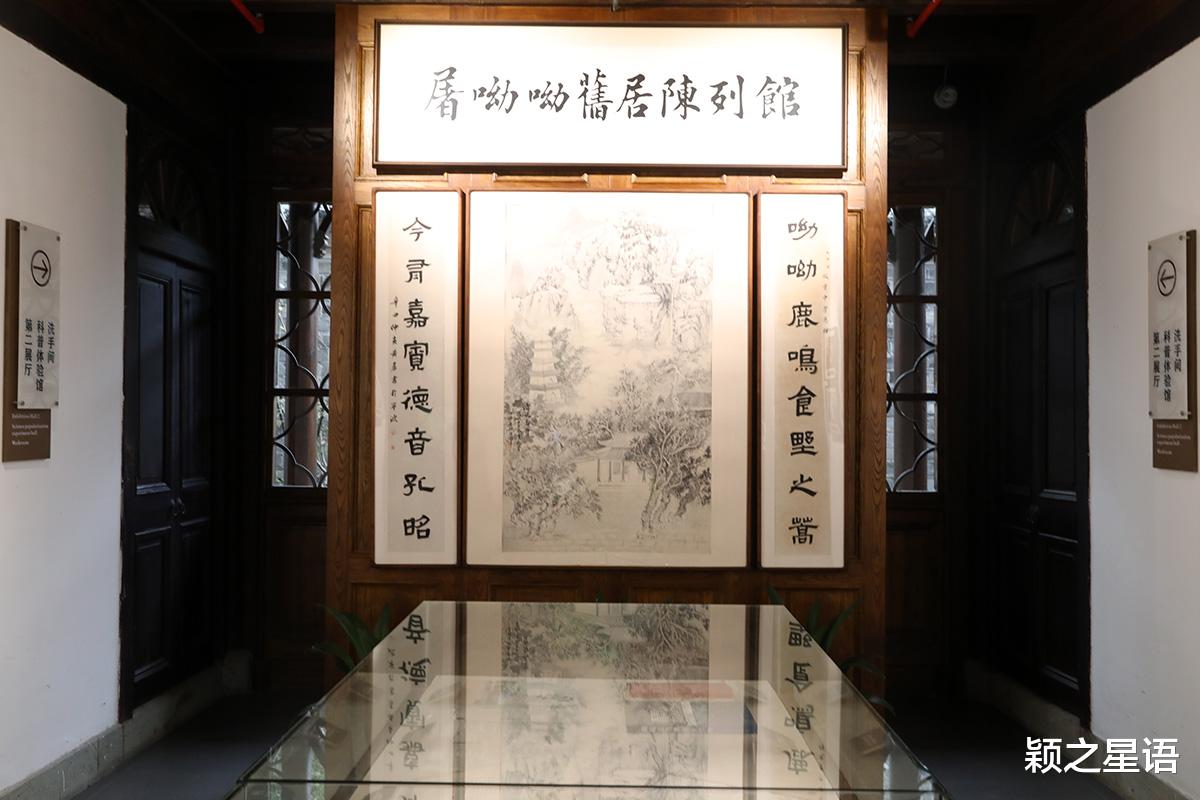 屠呦呦舊居陳列館
呦呦鹿鳴食野之蒿
今有嘉賓德音孔昭
洗手间
科普体验馆
第二展厅
Exhibition Hall 2
Science popularization
experiment hall
Washroom
洗手间
科普体验馆
第二展厅
Exhibition Hall 2
Science popularization
experiment hall
Washroom
颖之星语